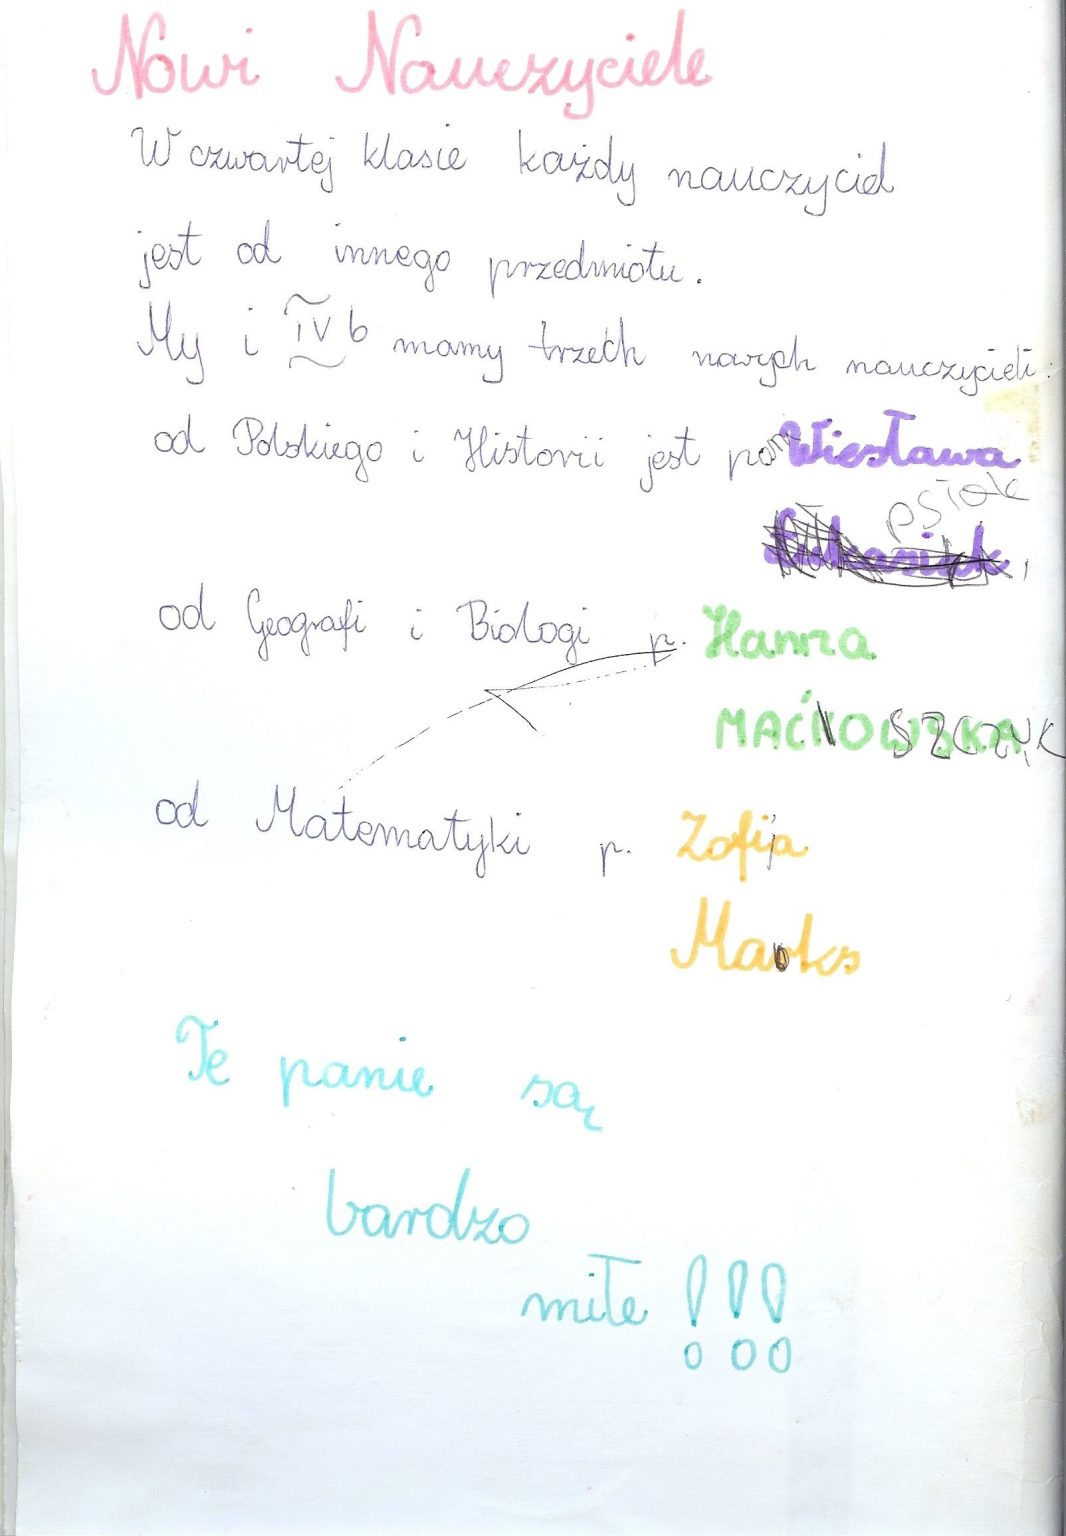 Nowi Nauczyciele
W czwartej klasie każdy nauczyciel
jest od innego przedmiotu.
My i IV b mamy trzech nowych nauczycieli:
od Polskiego i Historii jest pani Wiesława
psiak
,
od Geografi i Biologi p. Hanna
MAĆKOWSKA
SZCZYK
od Matematyki p. Zofija
Marks
Te panie są
bardzo
miłe !!!